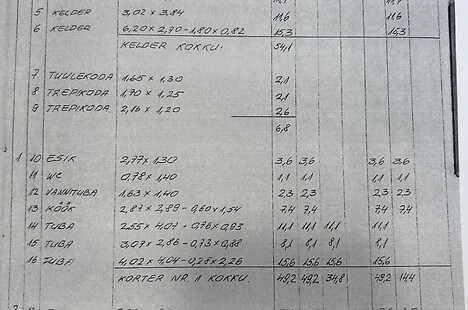 5 KELDER 3,02 x 3,84 11,6 11,6
6 KELDER 6,20 x 2,70 - 1,80 x 0,82 15,3 15,3
KELDER KOKKU. 54,1
7 TUULEKODA 1,65 x 1,30 2,1
8 TREPIKODA 1,70 x 1,25 2,1
9 TREPIKODA 2,16 x 1,20 2,6
6,8
1 10 ESIK 2,77 x 1,30 3,6 3,6 3,6 3,6
11 WC 0,78 x 1,40 1,1 1,1 1,1 1,1
12 VANNITUBA 1,63 x 1,40 2,3 2,3 2,3 2,3
13 KÖÖK 2,87 x 2,89 - 0,60 x 1,54 7,4 7,4 7,4 7,4
14 TUBA 2,55 x 4,07 + 0,76 x 0,93 11,1 11,1 11,1 11,1
15 TUBA 3,07 x 2,86 - 0,73 x 0,88 8,1 8,1 8,1 8,1
16 TUBA 4,02 x 4,04 - 0,28 x 2,26 15,6 15,6 15,6 15,6
KORTER NR. 1 KOKKU. 49,2 49,2 34,8 49,2 14,4